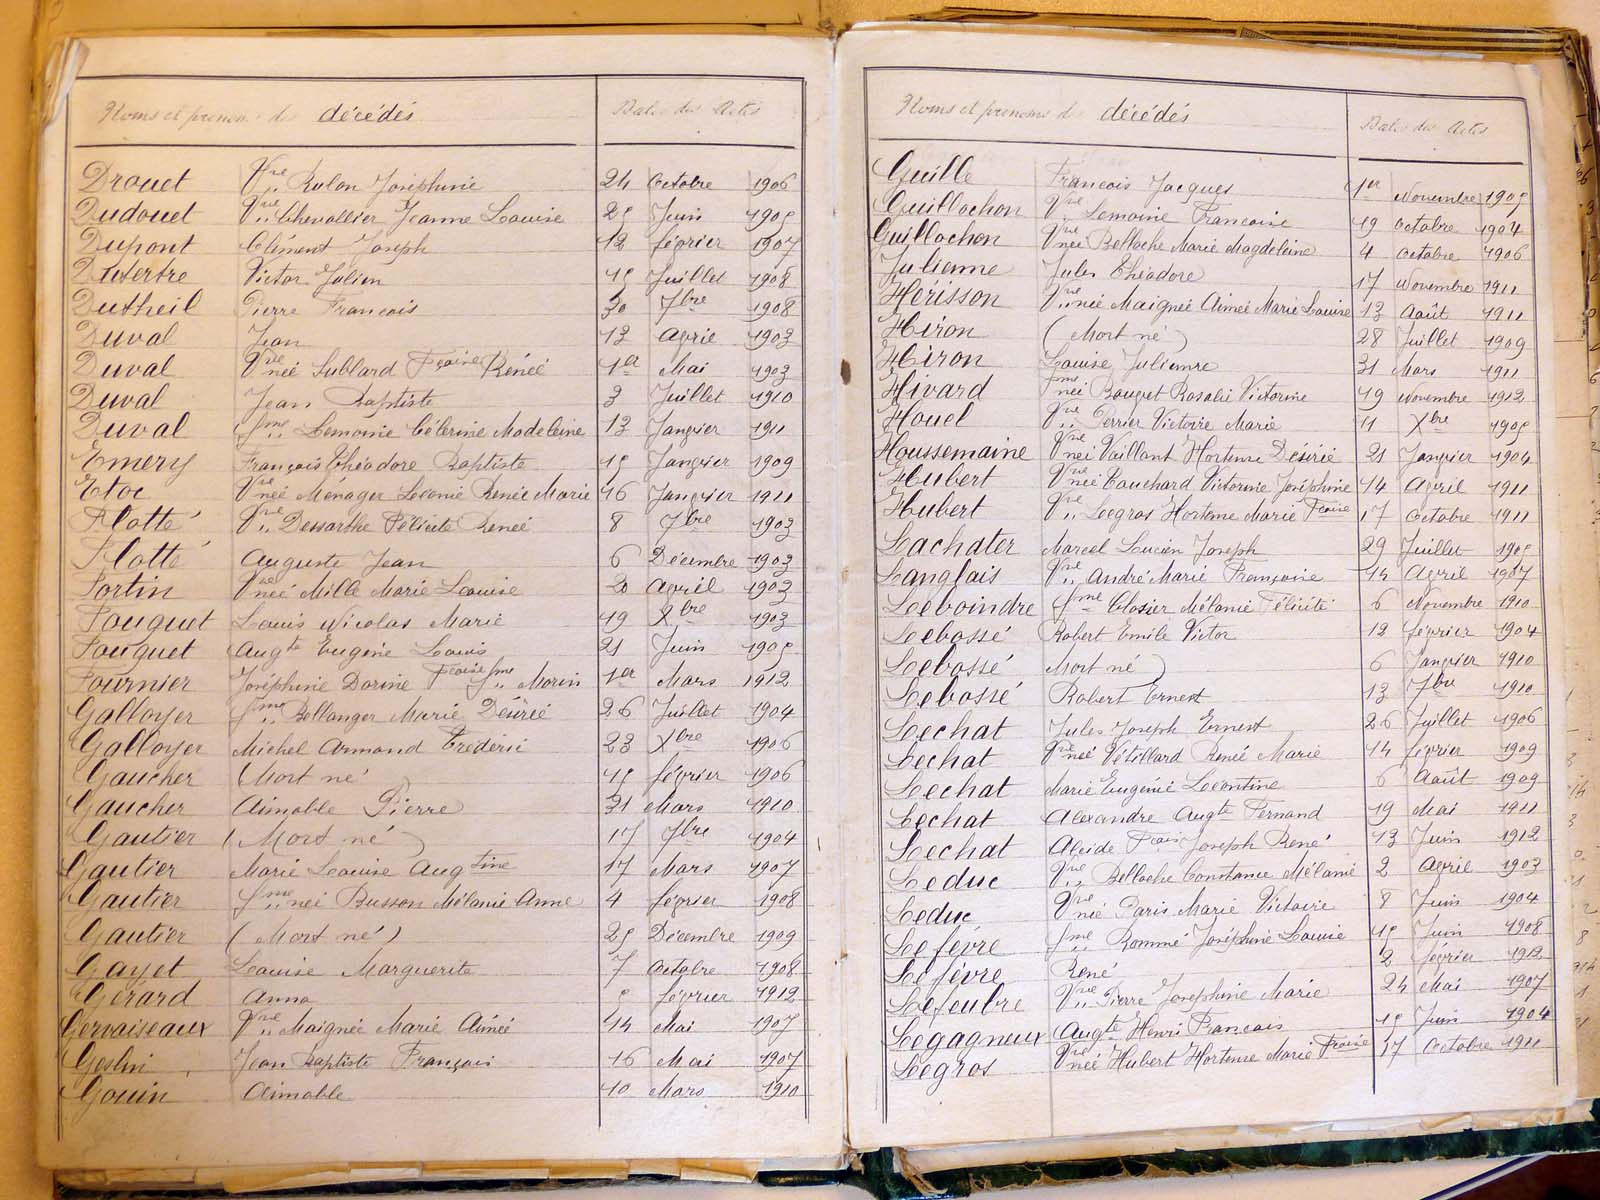 Noms et prénoms des décédés Dates des Actes
Drouet Vve „ Rulon Joséphine 24 Octobre 1906
Dudouet Vve „ Chevallier Jeanne Louise 25 Juin 1905
Dupont Clément Joseph 12 février 1907
Dutertre Victor Julien 15 Juillet 1908
Dutheil Pierre François 30 7bre 1908
Duval Jean 13 avril 1903
Duval Vve née Sublard Fçoise Rénée 1er Mai 1903
Duval Jean Baptiste 3 Juillet 1910
Duval fme „ Lemoine Célerine Madeleine 13 Janvier 1911
Emery François Théodore Baptiste 15 Janvier 1909
Etoc Vve née Ménager Léonie Renée Marie 16 Janvier 1911
Flotté Vve „ Dessarthe Félicité Renée 8 7bre 1903
Flotté Auguste Jean 6 Décembre 1903
Fortin Vve née Mille Marie Louise 20 avril 1903
Fouquet Louis Nicolas Marie 19 Xbre 1903
Fouquet Augte Eugène Louis 21 Juin 1905
Fournier Joséphine Dorine Fçoise fme „ Morin 1er Mars 1912
Galloyer fme „ Bellanger Marie Désirée 26 Juillet 1904
Galloyer Michel Armand Frédéric 23 Xbre 1906
Gaucher (Mort né) 15 février 1906
Gaucher Aimable Pierre 31 Mars 1910
Gautier (Mort né) 17 7bre 1904
Gautier Marie Louise Augtine 17 Mars 1907
Gautier fme „ née Busson Mélanie Anne 4 février 1908
Gautier (Mort né) 25 Décembre 1909
Gayet Louise Marguerite 7 Octobre 1908
Gérard Anna 5 février 1912
Gervaiseaux Vve „ Maignée Marie Aimée 14 Mai 1907
Geslin Jean Baptiste François 16 Mai 1907
Gouin Aimable 10 Mars 1910
Noms et prénoms des décédés Dates des Actes
Guille François Jacques 1er Novembre 1905
Guillochon Vve „ Lemoine Françoise 19 Octobre 1904
Guillochon Vve née Belloche Marie Magdeleine 4 Octobre 1906
Julienne Jules Théodore 17 Novembre 1911
Hérisson Vve née Maignée Aimée Marie Louise 13 Août 1911
Hiron (Mort né) 28 Juillet 1909
Hiron Louise Julienne 31 Mars 1911
Hivard fme née Bouget Rosalie Victorine 19 Novembre 1912
Houel Vve „ Perrier Victoire Marie 11 Xbre 1905
Houssemaine Vve née Vaillant Hortense Désirée 21 Janvier 1904
Hubert Vve née Couchard Victorine Joséphine 14 Avril 1911
Hubert Vve „ Legros Hortense Marie Fçoise 17 Octobre 1911
Lachater Marcel Lucien Joseph 29 Juillet 1905
Langlais Vve „ André Marie Françoise 14 Avril 1907
Leboindre fme „ Closier Mélanie Félicité 6 Novembre 1910
Lebossé Robert Emile Victor 12 février 1904
Lebossé Mort né) 6 Janvier 1910
Lebossé Robert Ernest 13 7bre 1910
Lechat Jules Joseph Ernest 26 Juillet 1906
Lechat Vve née Vétillard Renée Marie 14 février 1909
Lechat Marie Eugénie Léontine 6 Août 1909
Lechat Alexandre Augte Fernand 19 Mai 1911
Lechat Alcide Fçois Joseph René 13 Juin 1912
Leduc Vve „ Belloche Constance Mélanie 2 avril 1903
Leduc Vve née Paris Marie Victoire 8 Juin 1904
Lefèvre fme „ Rommé Joséphine Louise 15 Juin 1908
Lefèvre René 2 février 1912
Lefeubre Vve „ Pierre Joséphine Marie 24 Mai 1907
Legagneux Augte Henri François 15 Juin 1904
Legros Vve née Hubert Hortense Marie Fçoise 17 Octobre 1911